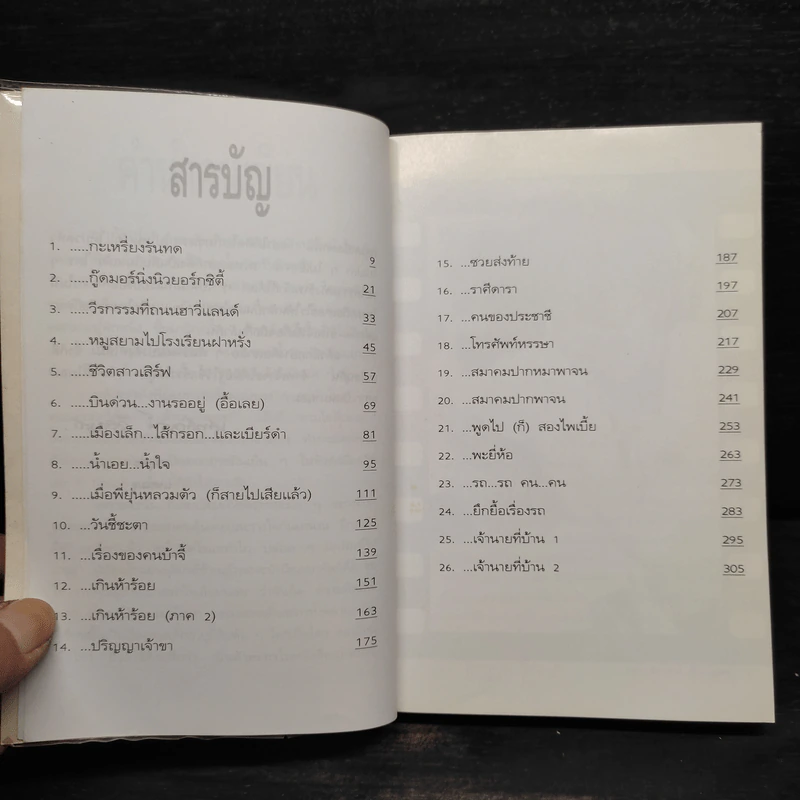 สารบัญ
1. .....กะเหรี่ยงรันทด 9
2. .....กู๊ดมอร์นิ่งนิวยอร์กซิตี้ 21
3. .....วีรกรรมที่ถนนฮาวี่แลนด์ 33
4. .....หมูสยามไปโรงเรียนฝาหรั่ง 45
5. .....ชีวิตสาวเสิร์ฟ 57
6. ...บินด่วน...งานรออยู่ (อื้อเลย) 69
7. ...เมืองเล็ก...ไส้กรอก...และเบียร์ดำ 81
8. ...น้ำเอย...น้ำใจ 95
9. ...เมื่อพี่ยุ่นหลวมตัว (ก็สายไปเสียแล้ว) 111
10. ...วันซี้ชะตา 125
11. ...เรื่องของคนบ้าจี้ 139
12. ...เกินห้าร้อย 151
13. ...เกินห้าร้อย (ภาค 2) 163
14. ...ปริญญาเจ้าขา 175
15. ...ซวยส่งท้าย 187
16. ...ราศีดารา 197
17. ...คนของประชาชี 207
18. ...โทรศัพท์หรรษา 217
19. ...สมาคมปากหมาพาจน 229
20. ...สมาคมปากพาจน 241
21. ...พูดไป (ก็) สองไพเบี้ย 253
22. ...พะยี่ห้อ 263
23. ...รถ...รถ คน...คน 273
24. ...ยึกยื้อเรื่องรถ 283
25. ...เจ้านายที่บ้าน 1 295
26. ...เจ้านายที่บ้าน 2 305